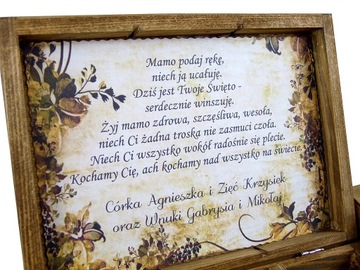 Mamo podaj rękę,
niech ją ucałuję.
Dziś jest Twoje Święto -
serdecznie winszuję.
Żyj mamo zdrowa, szczęśliwa, wesoła,
niech Ci żadna troska nie zasmuci czoła.
Niech Ci wszystko wokół radośnie się plecie.
Kochamy Cię, ach kochamy nad wszystko na świecie.
Córka Agnieszka i Zięć Krzysiek
oraz Wnuki Gabrysia i Mikołaj